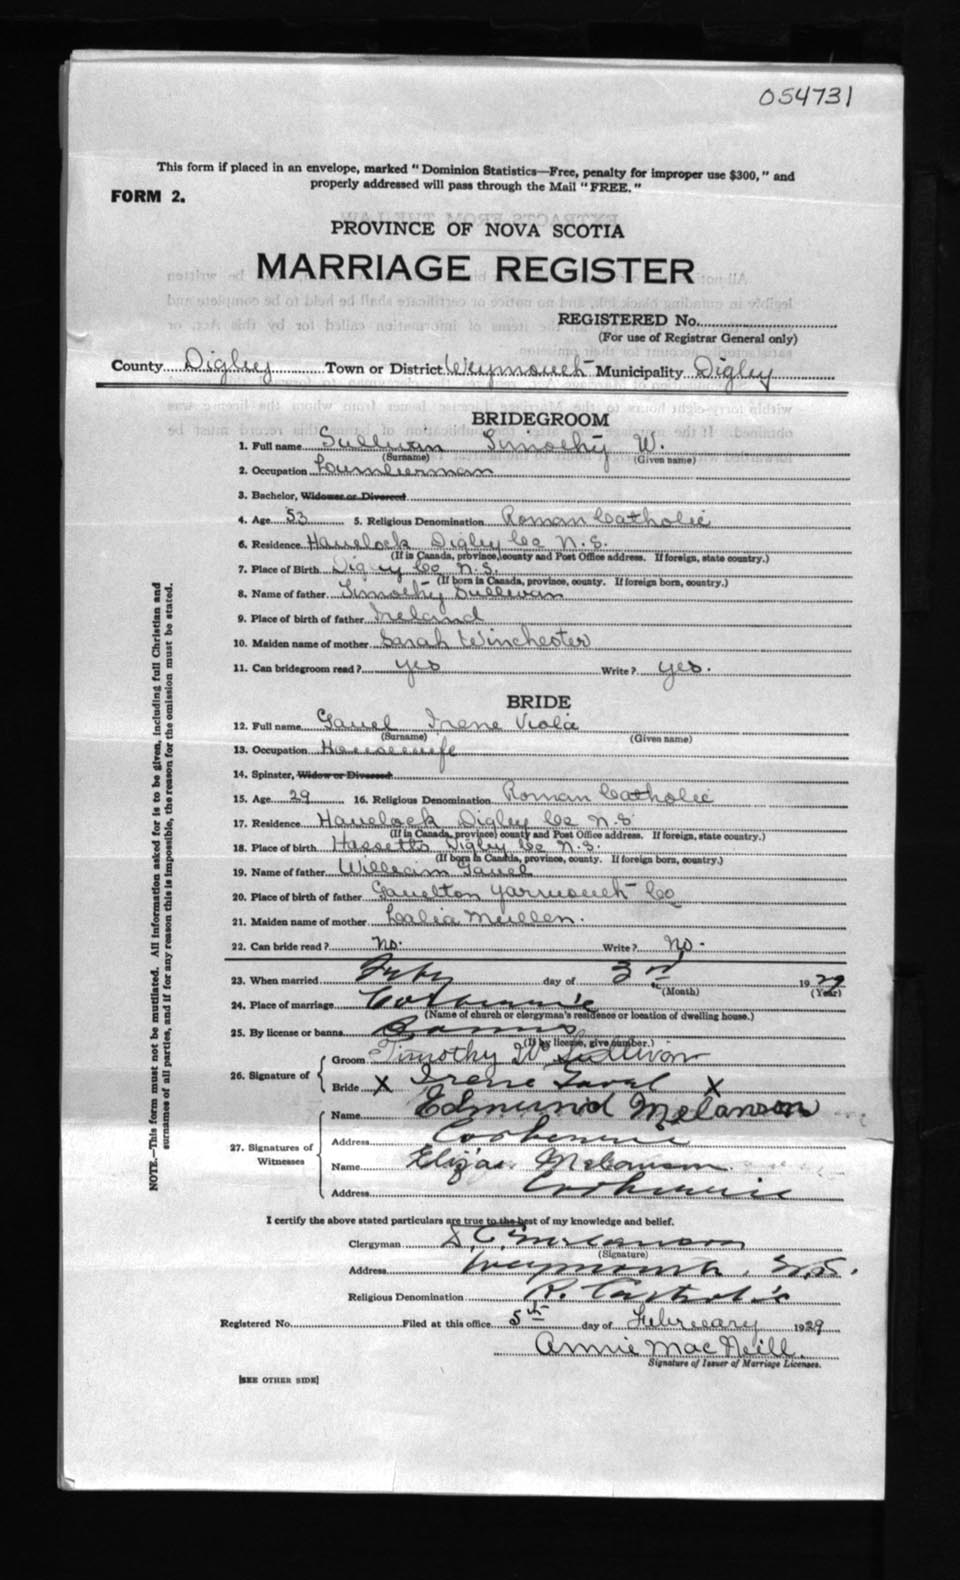 054731
This form if placed in an envelope, marked "Dominion Statistics—Free, penalty for improper use $300," and
properly addressed will pass through the Mail "FREE."
FORM 2.
PROVINCE OF NOVA SCOTIA
MARRIAGE REGISTER
REGISTERED No.
(For use of Registrar General only)
County Digby Town or District Weymouth Municipality Digby
BRIDEGROOM
1. Full name Sullivan Timothy W.
(Surname) (Given name)
2. Occupation Loumberman
3. Bachelor, Widower or Divorced
4. Age 53 5. Religious Denomination Roman Catholic
6. Residence Havelock Digby Co N.S.
(If in Canada, province, county and Post Office address. If foreign, state country.)
7. Place of Birth Digby Co N.S.
(If born in Canada, province, county. If foreign born, country.)
8. Name of father Timothy Sullivan
9. Place of birth of father Ireland
10. Maiden name of mother Sarah Winchester
11. Can bridegroom read? yes Write? yes.
BRIDE
12. Full name Gavel Irene Viola
(Surname) (Given name)
13. Occupation Housewife
14. Spinster, Widow or Divorced
15. Age 29 16. Religious Denomination Roman Catholic
17. Residence Havelock Digby Co N.S
(If in Canada, province, county and Post Office address. If foreign, state country.)
18. Place of birth Hassetts Digby Co N.S.
(If born in Canada, province, county. If foreign born, country.)
19. Name of father William Gavel
20. Place of birth of father Gavelton Yarmouth Co
21. Maiden name of mother Lalia Mullen.
22. Can bride read? No. Write? No.
23. When married Feby day of 3rd 1929
(Month) (Year)
24. Place of marriage Corberrie
(Name of church or clergyman's residence or location of dwelling house.)
25. By license or banns Banns
(If by license, give number.)
26. Signature of
Groom Timothy W Sullivan
Bride X Irene Gavel X
27. Signatures of Witnesses
Name Edmund Melanson
Address Corberrie
Name Eliza Melanson
Address Corberrie
I certify the above stated particulars are true to the best of my knowledge and belief.
Clergyman Melanson
(Signature)
Address Weymouth, N.S.
Religious Denomination R. Catholic
Registered No. Filed at this office 5th day of February 1929
Annie MacNeill.
Signature of Issuer of Marriage Licenses.
[SEE OTHER SIDE]
NOTE.—This form must not be mutilated. All information asked for is to be given, including full Christian and
surnames of all parties, and if for any reason this is impossible, the reason for the omission must be stated.